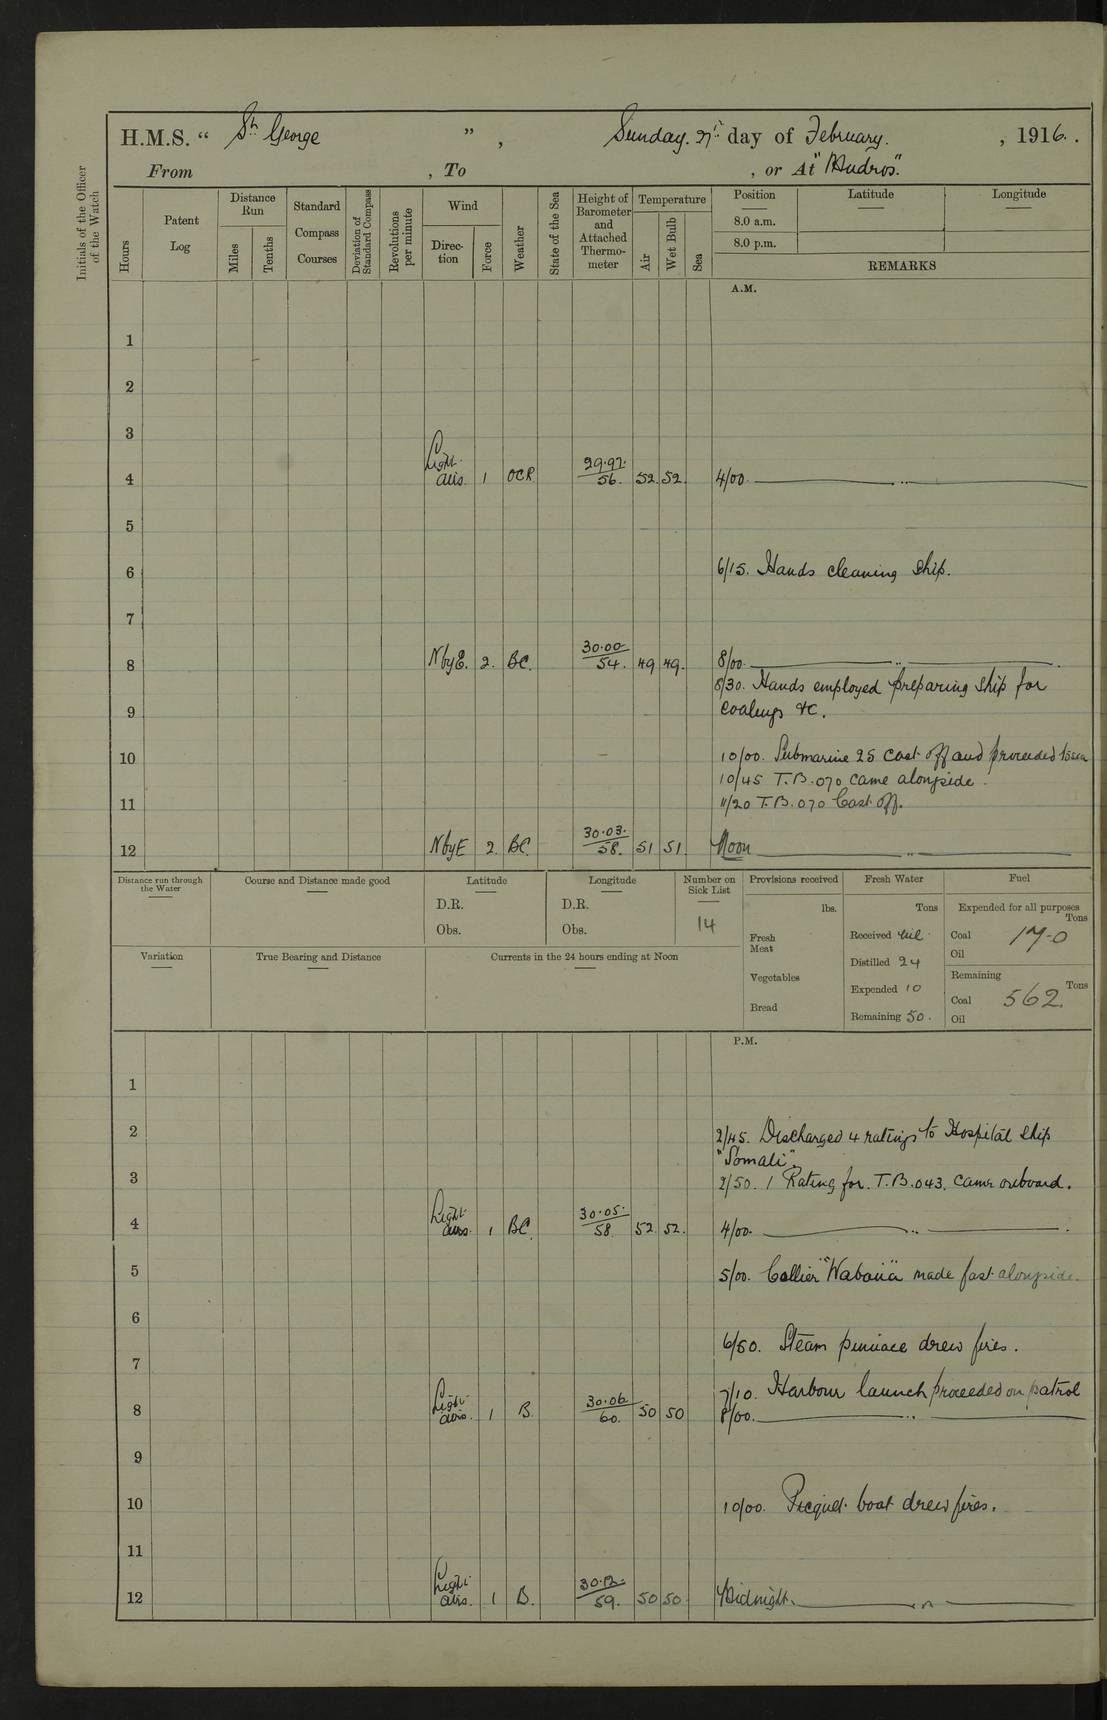 H.M.S. “ St George ” , Sunday. 27th day of February. , 1916. .
From , To , or At "Mudros".
Initials of the Officer of the Watch
Hours
Patent Log
Distance Run
Miles
Tenths
Standard Compass Courses
Deviation of Standard Compass
Revolutions per minute
Wind
Direc-tion
Force
Weather
State of the Sea
Height of Barometer and Attached Thermo-meter
Temperature
Air
Wet Bulb
Sea
Position
Latitude
Longitude
8.0 a.m.
8.0 p.m.
REMARKS
A.M.
1
2
3
4 Light airs. 1 OCR 29.97. 56. 52. 52. 4/00. ——— " ———
5
6 6/15. Hands cleaning ship.
7
8 N by E. 2. BC. 30.00 54. 49 49. 8/00. ——— " ———
8/30. Hands employed preparing ship for
9 coaling &c.
10 10/00. Submarine 25 cast off and proceeded to sea
10/45 T.B. 070 came alongside.
11 11/20 T.B. 070 Cast off.
12 N by E 2. BC. 30.03. 58. 51 51 Noon ——— " ———
Distance run through the Water
Course and Distance made good
Latitude
D.R.
Obs.
Longitude
D.R.
Obs.
Number on Sick List
14
Provisions received
lbs.
Fresh Meat
Vegetables
Bread
Fresh Water
Tons
Received nil
Distilled 24
Expended 10
Remaining 50.
Fuel
Expended for all purposes
Tons
Coal 17-0
Oil
Remaining
Tons
Coal 562.
Oil
Variation
True Bearing and Distance
Currents in the 24 hours ending at Noon
P.M.
1
2 2/45. Discharged 4 ratings to Hospital Ship
"Somali".
3 2/50. 1 Rating for T.B. 043. came onboard.
4 Light airs. 1 BC. 30.05. 58. 52. 52. 4/00. ——— " ———
5 5/00. Collier "Wabana" made fast alongside.
6
6/50. Steam pinnace drew fires.
7
7/10. Harbour launch proceeded on patrol
8 Light airs. 1 B. 30.06 60. 50 50 8/00. ——— " ———
9
10 10/00. Picquet boat drew fires.
11
12 Light airs. 1 B. 30.12. 59. 50 50 Midnight. ——— " ———